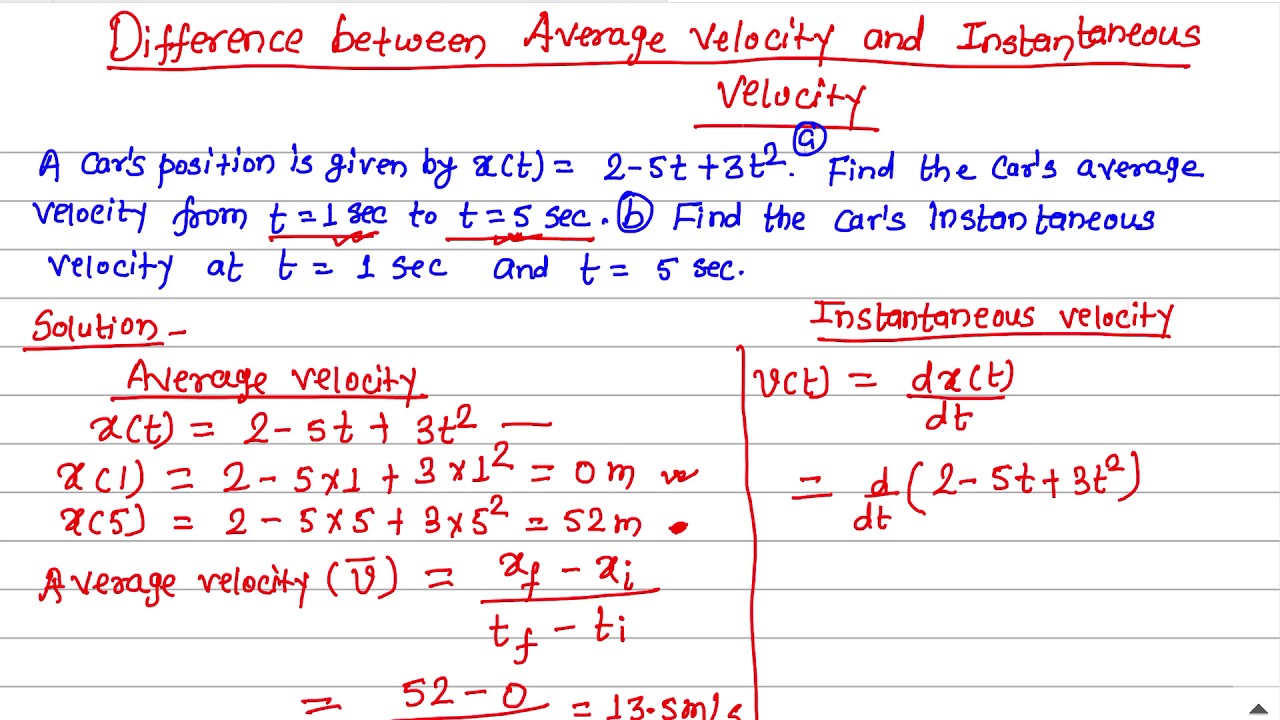 Difference between Average velocity and Instantaneous
velocity
A car's position is given by x(t) = 2-5t+3t². (a) Find the car's average
velocity from t=1 sec to t=5 sec. (b) Find the car's Instantaneous
velocity at t = 1 sec and t = 5 sec.
Solution -
Average velocity
x(t) = 2-5t+3t²
x(1) = 2-5×1+3×1² = 0m
x(5) = 2-5×5+3×5² = 52m
Average velocity (v̅) = xf - xi
tf - ti
= 52-0 = 13.5m/s
Instantaneous velocity
v(t) = dx(t)
dt
= d (2-5t+3t²)
dt